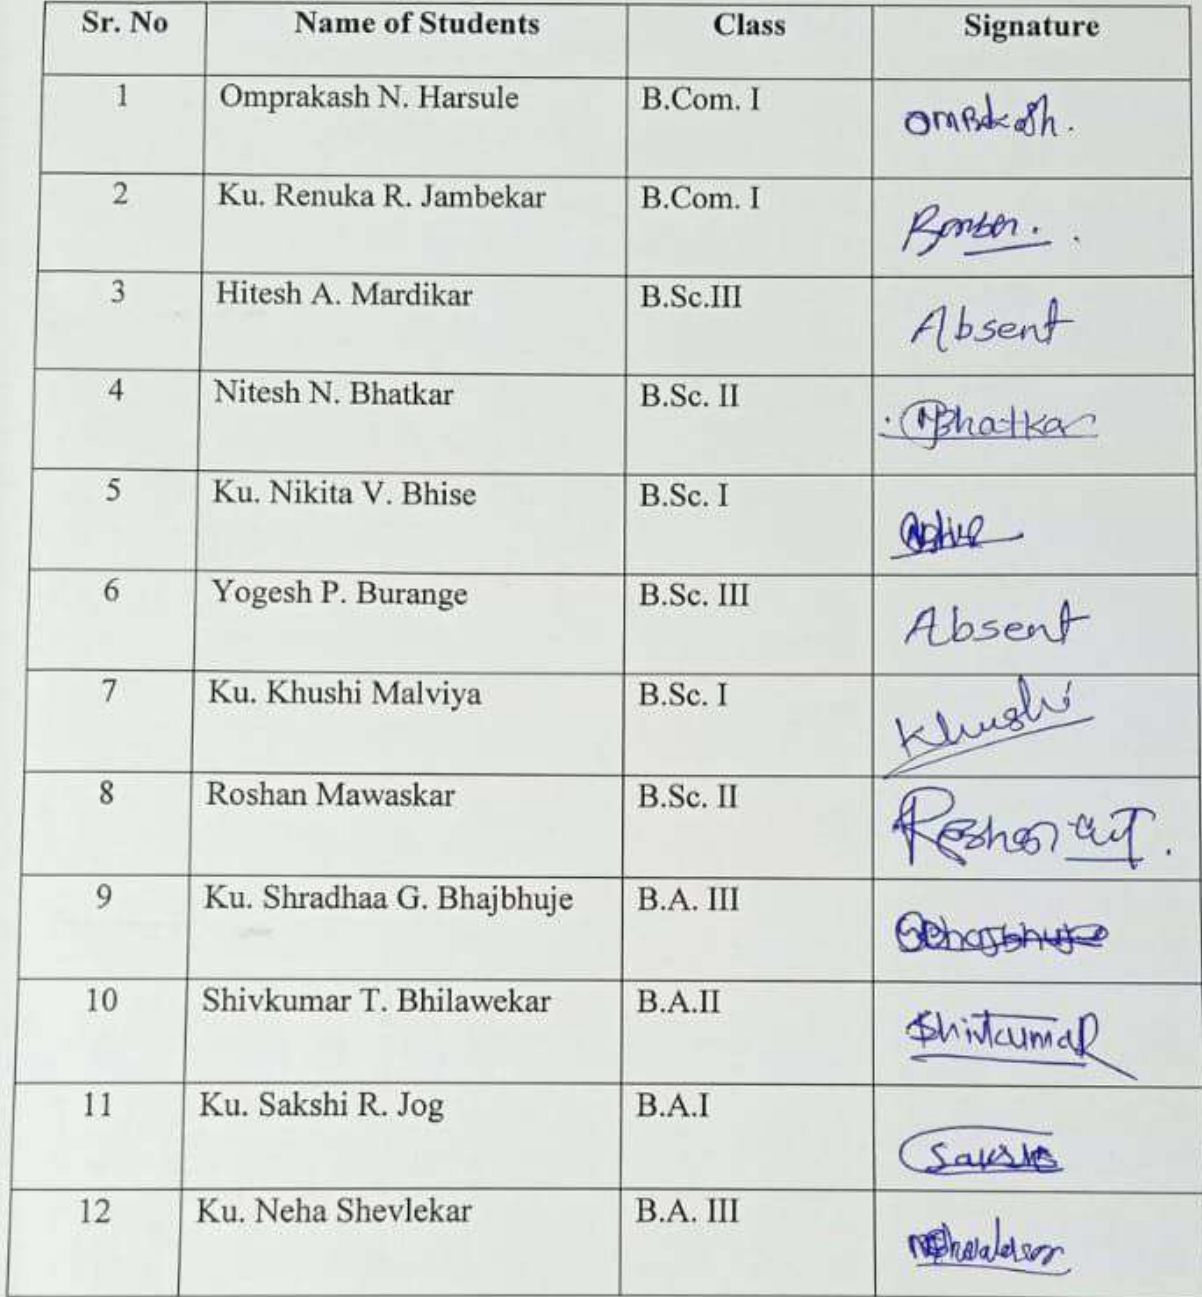 Sr. No Name of Students Class Signature
1 Omprakash N. Harsule B.Com. I
2 Ku. Renuka R. Jambekar B.Com. I
3 Hitesh A. Mardikar B.Sc.III Absent
4 Nitesh N. Bhatkar B.Sc. II NBhatkar
5 Ku. Nikita V. Bhise B.Sc. I
6 Yogesh P. Burange B.Sc. III Absent
7 Ku. Khushi Malviya B.Sc. I Khushi
8 Roshan Mawaskar B.Sc. II Roshan
9 Ku. Shradhaa G. Bhajbhuje B.A. III SBhajbhuje
10 Shivkumar T. Bhilawekar B.A.II Shivkumar
11 Ku. Sakshi R. Jog B.A.I Sakshi
12 Ku. Neha Shevlekar B.A. III